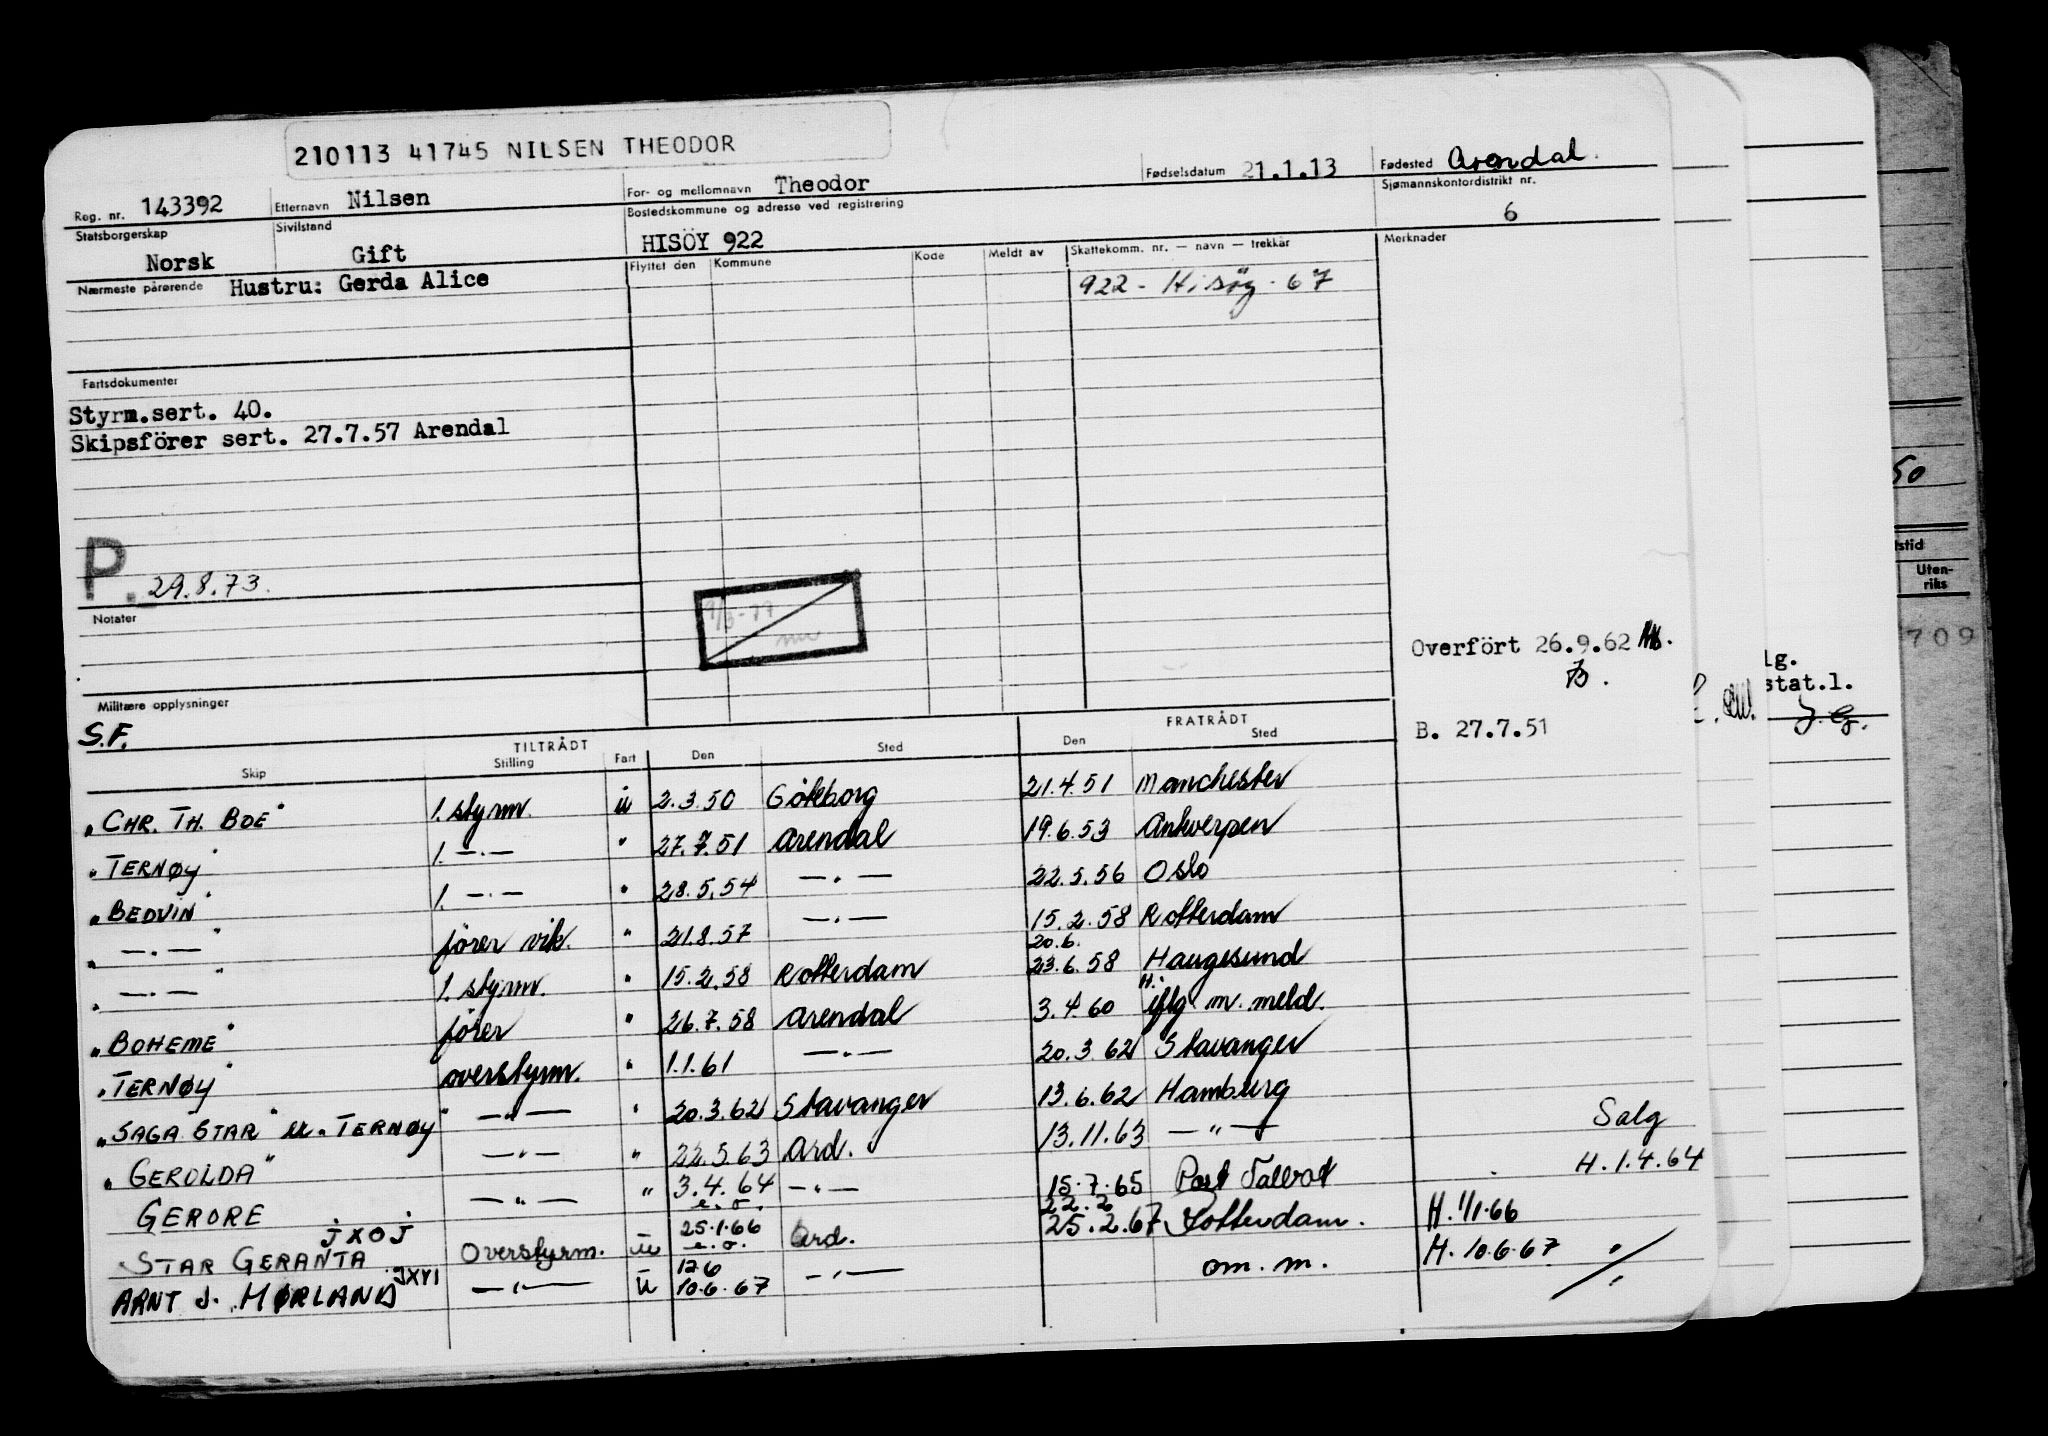 210113 41745 NILSEN THEODOR
Reg. nr. 143392 Etternavn Nilsen For- og mellomnavn Theodor Fødselsdatum 21.1.13 Fødested Arendal.
Statsborgerskap Norsk Sivilstand Gift Bostedskommune og adresse ved registrering HISÖY 922 Sjømannskontordistrikt nr. 6
Nærmeste pårørende Hustru: Gerda Alice Flyttet den Kommune Kode Meldt av Skattekomm. nr. — navn — trekkår Merknader
922 - Hisöy - 67
Fartsdokumenter
Styrm.sert. 40.
Skipsförer sert. 27.7.57 Arendal
50
P. 29.8.73.
tstid
Uten-
riks
Notater
709
Overfört 26.9.62
B.
lg.
stat.l.
Militære opplysninger
S.F.
B. 27.7.51
TILTRÅDT FRATRÅDT
Skip Stilling Fart Den Sted Den Sted
"CHR. TH. BOE" 1. styrm. u 2.3.50 Göteborg 21.4.51 Manchester
"TERNØY" 1. —.— " 27.7.51 Arendal 19.6.53 Antverpen
"BEDVIN" 1. —.— " 28.5.54 —.— 22.5.56 Oslo
" —.— " förer vik. " 21.8.57 —.— 15.2.58 Rotterdam
20.6.
" —.— " 1. styrm. " 15.2.58 Rotterdam 23.6.58 Haugesund
"BOHEME" förer " 26.7.58 Arendal 3.4.60 H. iflg. m. meld.
"TERNØY" overstyrm. " 1.1.61 —.— 20.3.62 Stavanger
"SAGA STAR" ex. "TERNØY" —"— " 20.3.62 Stavanger 13.6.62 Hamburg
"GEROLDA" —"— " 22.5.63 Ard. 13.11.63 —"— Salg
GERORE —"— " 3.4.64 —"— 15.7.65 Port Talbot H. 1.4.64
e.o. 22.2
STAR GERANTA JXOJ Overstyrm. u 25.1.66 Ard. 25.2.67 Rotterdam. H. 1/1.66
e.o.
12.6
ARNT J. MØRLAND JXYI —"— u 10.6.67 —"— om. m. H. 10.6.67